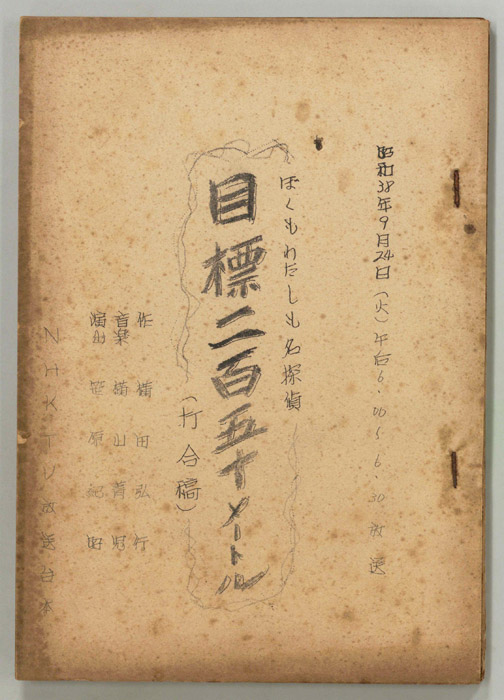 昭和38年9月24日（火）午后6.00〜6.30放送
ぼくもわたしも名探偵
目標二百五十メートル
（打合稿）
作　横田弘行
音楽　横山菁児
演出　笹原紀昭
NHKTV放送台本